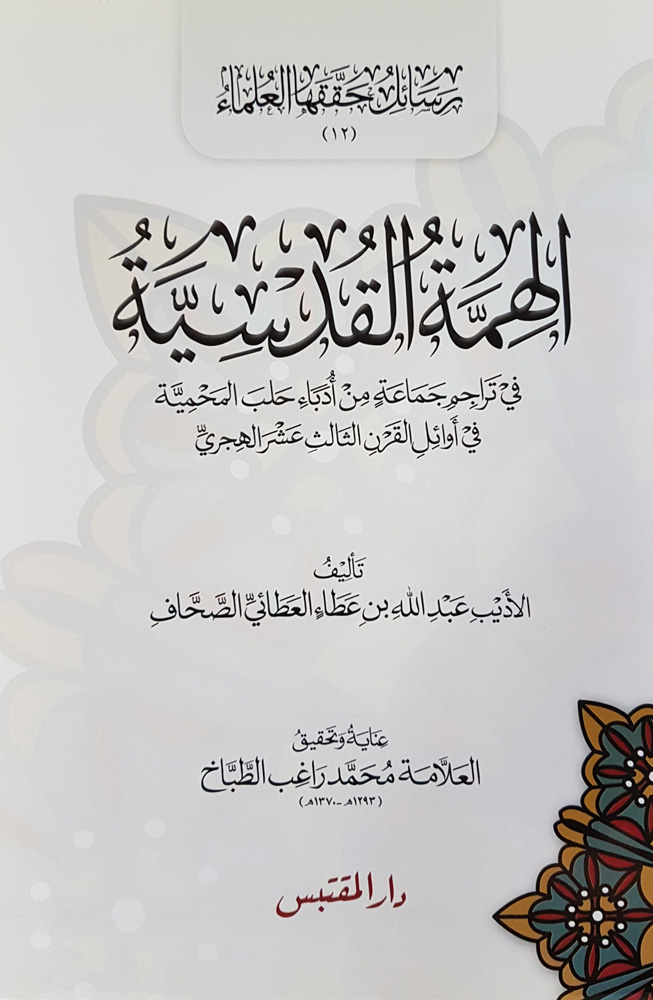 رَسَائِلُ حَقَّقَهَا العُلَمَاءُ
(١٢)
الهِمَّةُ القُدْسِيَّةُ
فِي تَرَاجِمِ جَمَاعَةٍ مِنْ أُدَبَاءِ حَلَبَ المَحْمِيَّة
فِي أَوَائِلِ القَرْنِ الثَّالِثِ عَشَرَ الهِجرِيِّ
تَأْلِيْفُ
الأَدِيْبِ عَبْدِ اللهِ بنِ عَطَاءِ العَطَائِيِّ الصَّحَّافِ
عِنَايَةُ وَتَحْقِيقُ
العَلَّامَة مُحَمَّد رَاغِب الطَّبَّاخ
(١٢٩٣هـ - ١٣٧٠هـ)
دار المقتبس